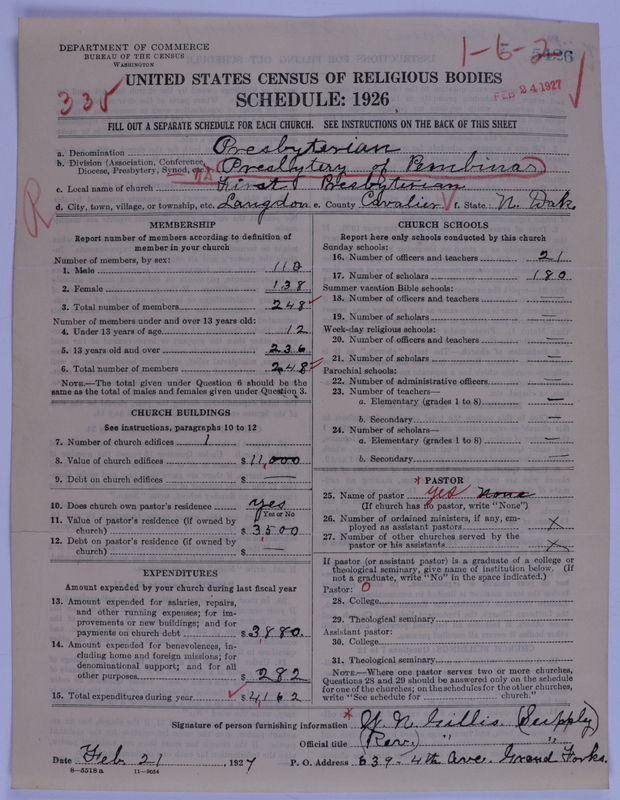 DEPARTMENT OF COMMERCE
BUREAU OF THE CENSUS
WASHINGTON
1-6-2
5426
FEB 24 1927
335
UNITED STATES CENSUS OF RELIGIOUS BODIES
SCHEDULE: 1926
FILL OUT A SEPARATE SCHEDULE FOR EACH CHURCH. SEE INSTRUCTIONS ON THE BACK OF THIS SHEET
a. Denomination Presbyterian
b. Division (Association, Conference, Diocese, Presbytery, Synod, etc.) Presbytery of Pembina
c. Local name of church First Presbyterian
d. City, town, village, or township, etc. Langdon e. County Cavalier f. State N. Dak.
R
MEMBERSHIP
Report number of members according to definition of
member in your church
Number of members, by sex:
1. Male 110
2. Female 138
3. Total number of members 248
Number of members under and over 13 years old:
4. Under 13 years of age 12
5. 13 years old and over 236
6. Total number of members 248
NOTE.—The total given under Question 6 should be the
same as the total of males and females given under Question 3.
CHURCH BUILDINGS
See instructions, paragraphs 10 to 12
7. Number of church edifices 1
8. Value of church edifices $11,000
9. Debt on church edifices $ —
10. Does church own pastor's residence yes
Yes or No
11. Value of pastor's residence (if owned by
church) $3500
12. Debt on pastor's residence (if owned by
church) $ —
EXPENDITURES
Amount expended by your church during last fiscal year
13. Amount expended for salaries, repairs,
and other running expenses; for im-
provements or new buildings; and for
payments on church debt $3880.
14. Amount expended for benevolences, in-
cluding home and foreign missions; for
denominational support; and for all
other purposes $282
15. Total expenditures during year $4,162
CHURCH SCHOOLS
Report here only schools conducted by this church
Sunday schools:
16. Number of officers and teachers 21
17. Number of scholars 180
Summer vacation Bible schools:
18. Number of officers and teachers —
19. Number of scholars —
Week-day religious schools:
20. Number of officers and teachers —
21. Number of scholars —
Parochial schools:
22. Number of administrative officers —
23. Number of teachers—
a. Elementary (grades 1 to 8) —
b. Secondary —
24. Number of scholars—
a. Elementary (grades 1 to 8) —
b. Secondary —
* PASTOR
25. Name of pastor yes None
(If church has no pastor, write "None")
26. Number of ordained ministers, if any, em-
ployed as assistant pastors x
27. Number of other churches served by the
pastor or his assistants x
If pastor (or assistant pastor) is a graduate of a college or
theological seminary, give name of institution below. (If
not a graduate, write "No" in the space indicated.)
Pastor: 0
28. College
29. Theological seminary
Assistant pastor:
30. College
31. Theological seminary
NOTE.—Where one pastor serves two or more churches,
Questions 28 and 29 should be answered only on the schedule
for one of the churches; on the schedules for the other churches,
write "See schedule for church."
Signature of person furnishing information * W. N. Gillis. (Supply)
Official title (Rev. " "
Date Feb 21, 1927 P. O. Address 639- 4th Ave. Grand Forks.
8-5518a 11-9054